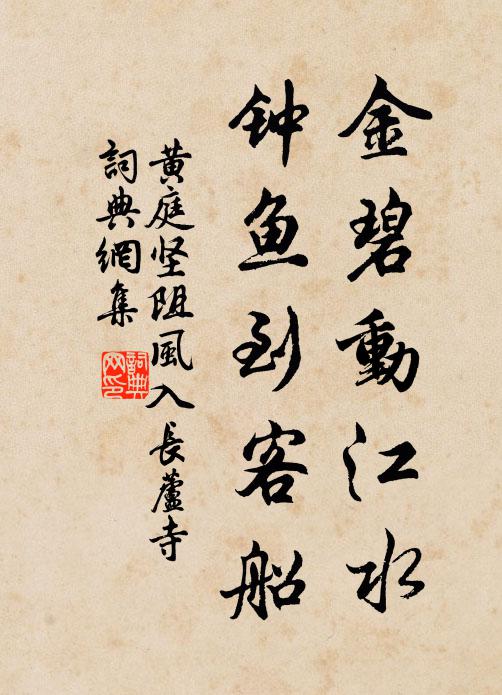 金碧動江水
钟鱼到客船
黄庭坚阻風入長蘆寺
詞典網集
詞典网印